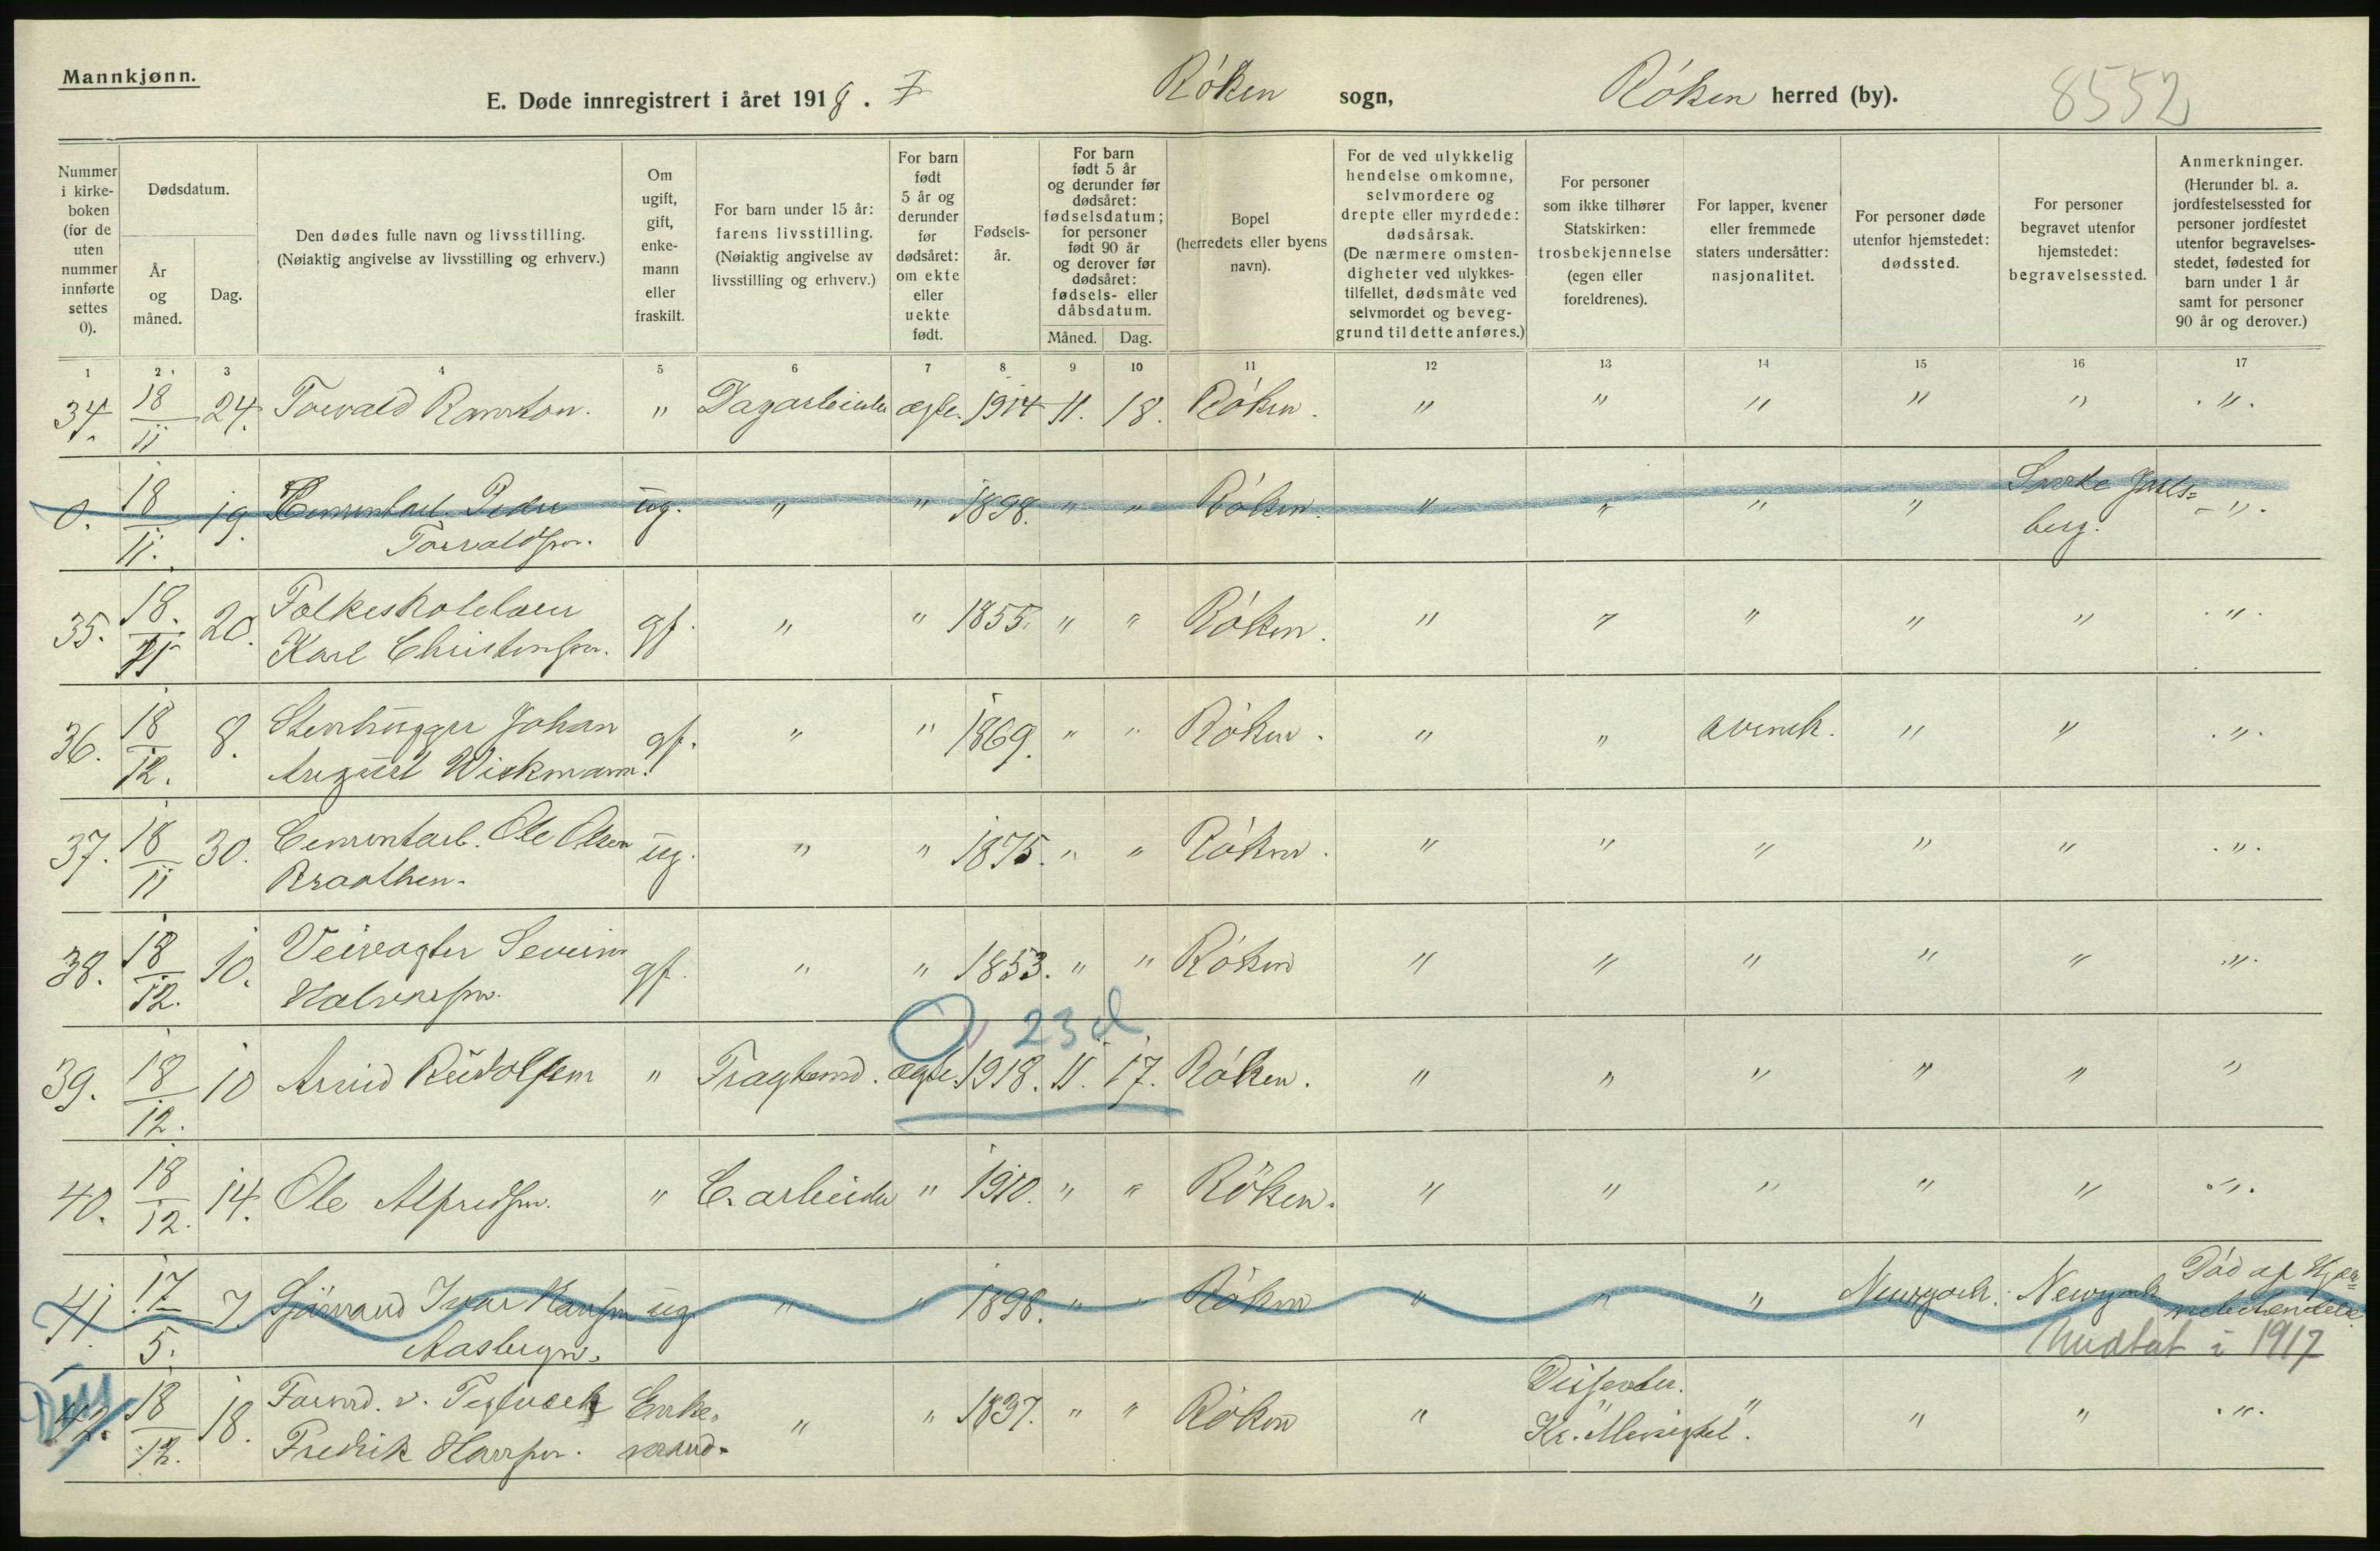 Mannkjønn.
E. Døde innregistrert i året 1918. 7
Røken sogn,
Røken herred (by).
8552
Nummer i kirke-boken (for de uten nummer innførte settes 0).
Dødsdatum.
År og måned.
Dag.
Den dødes fulle navn og livsstilling. (Nøiaktig angivelse av livsstilling og erhverv.)
Om ugift, gift, enke-mann eller fraskilt.
For barn under 15 år: farens livsstilling. (Nøiaktig angivelse av livsstilling og erhverv.)
For barn født 5 år og derunder før dødsåret: om ekte eller uekte født.
Fødsels-år.
For barn født 5 år og derunder før dødsåret: fødselsdatum; for personer født 90 år og derover før dødsåret: fødsels- eller dåbsdatum.
Måned.
Dag.
Bopel (herredets eller byens navn).
For de ved ulykkelig hendelse omkomne, selvmordere og drepte eller myrdede: dødsårsak. (De nærmere omsten-digheter ved ulykkes-tilfellet, dødsmåte ved selvmordet og beveg-grund til dette anføres.)
For personer som ikke tilhører Statskirken: trosbekjennelse (egen eller foreldrenes).
For lapper, kvener eller fremmede staters undersåtter: nasjonalitet.
For personer døde utenfor hjemstedet: dødssted.
For personer begravet utenfor hjemstedet: begravelsessted.
Anmerkninger. (Herunder bl. a. jordfestelsessted for personer jordfestet utenfor begravelses-stedet, fødested for barn under 1 år samt for personer 90 år og derover.)
1 2 3 4 5 6 7 8 9 10 11 12 13 14 15 16 17
34. 18/11 24. Torvald Ramton. " Dagarbeider ægte. 1914 11. 18. Røken. " " " " " . " .
0. 18/11. 19. Cementarb. Peder ug. " " 1898. " " Røken. " " " " Jarls=
Torvaldsen. berg. - " .
35. 18./11 20. Folkeskolelærer
Karl Christensen. gf. " " 1855. " " Røken. " " " " " . " .
36. 18/12. 8. Stenhugger Johan
August Wickmann. gf. " " 1869. " " Røken. " " svensk. " " . " .
37. 18/11 30. Cementarb. Ole Olsen ug. " " 1875. " " Røken. " " " " " . " .
Braathen.
38. 18/12. 10. Veivogter Severin
Halvorsen. gf. " " 1853. " " Røken " " " " " . " .
23 d
39. 18/12. 10 Arvid Rudolfsen " Fragtemd. ægte. 1918. 11. 17. Røken. " " " " " "
40. 18/12. 14. Ole Alfredsen. " C. arbeider " 1910. " " Røken. " " " " " . " .
41. 17/5. 7. Sjømand Ivar Hansen ug " " 1898. " " Røken " " " Newyork. Newyork Død af
1917
42. 18/12. 18. Formd. v. Teglverk Enke-
Fredrik Hansen. mand. " " 1837. " " Røken " Dissenter. " " " . " .
Kr. Menighed".